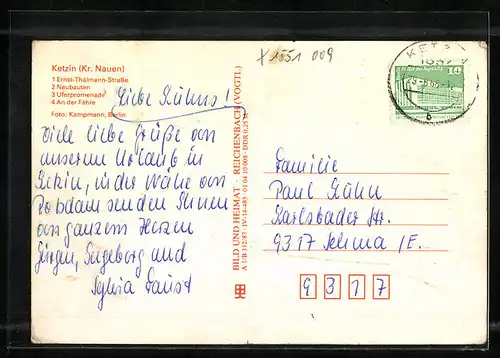 Ketzin (Kr. Nauen)
1 Ernst-Thälmann-Straße
2 Neubauten
3 Uferpromenade
4 An der Fähre
Foto: Kampmann, Berlin
X1551 009
Liebe Kühns!
Viele liebe Grüße von
unserem Urlaub in
Ketzin, in der Nähe von
Potsdam senden Ihnen
von ganzem Herzen
Jürgen, Ingeborg und
Sylvia Faust
BILD UND HEIMAT · REICHENBACH (VOGTL)
A 1/B 112/87 IV-14-483 01 04 10 008 DDR 0,25 M
KETZIN
10
b
Familie
Paul Kühn
Karlsbader Str.
9317 Sehma/E.
9 3 1 7